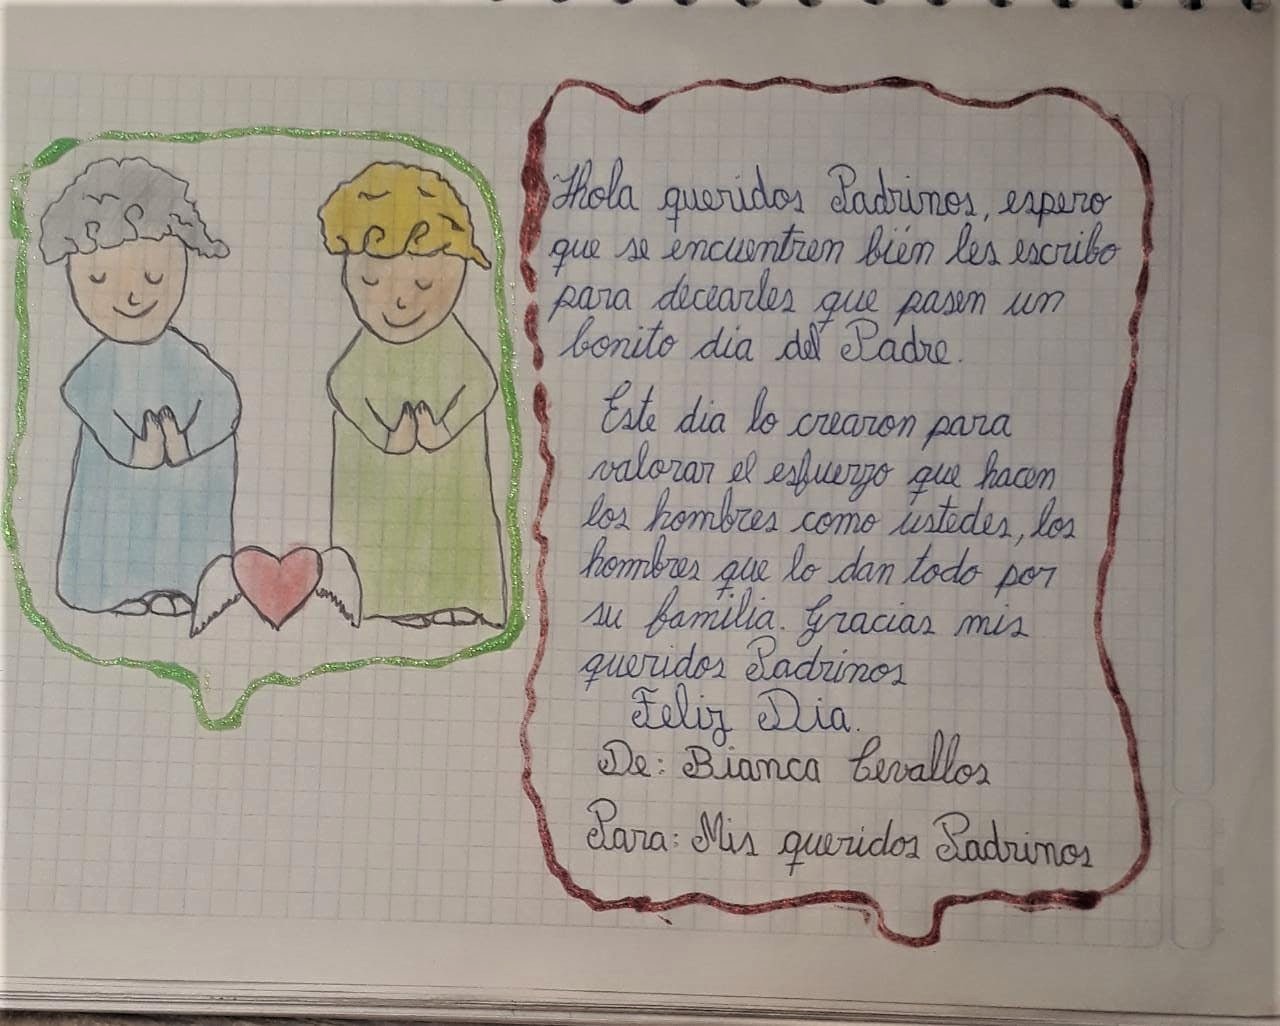 Hola queridos Padrinos, espero
que se encuentren bién les escribo
para decearles que pasen un
bonito dia del Padre.
Este dia lo crearon para
valorar el esfuerzo que hacen
los hombres como ustedes, los
hombres que lo dan todo por
su familia. Gracias mis
queridos Padrinos
Feliz Dia.
De: Bianca Cevallos
Para: Mis queridos Padrinos